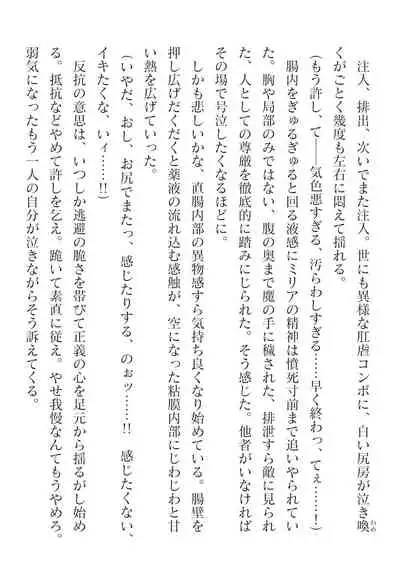 注入、排出、次いでまた注入。世にも異様な肛虐コンボに、白い尻房が泣き喚
わめ
くがごとく幾度も左右に悶えて揺れる。
(もう許し、て――気色悪すぎる、汚らわしすぎる……早く終わっ、てぇ……!)
腸内をぎゅるぎゅると回る液感にミリアの精神は憤死寸前まで追いやられてい
た。胸や局部のみではない、腹の奥まで魔の手に穢された、排泄すら敵に見られ
た、人としての尊厳を徹底的に踏みにじられた。そう感じた。他者がいなければ
その場で号泣したくなるほどに。
しかも悲しいかな、直腸内部の異物感すら気持ち良くなり始めている。腸壁を
押し広げだくだくと薬液の流れ込む感触が、空になった粘膜内部にじわじわと甘
い熱を広げていった。
(いやだ、おし、お尻でまたっ、感じたりする、のぉッ……!! 感じたくない、
イキたくな、いィ……!!)
反抗の意思は、いつしか逃避の脆さを帯びて正義の心を足元から揺るがし始め
る。抵抗などやめて許しを乞え。跪いて素直に従え。やせ我慢なんてもうやめろ。
弱気になったもう一人の自分が泣きながらそう訴えてくる。